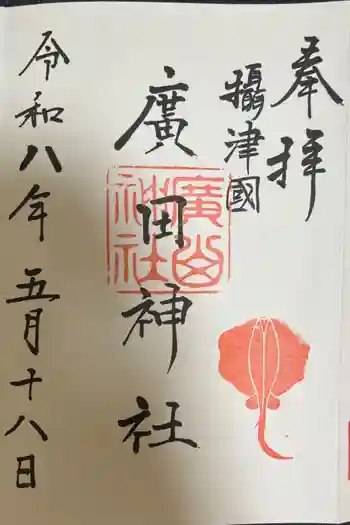 奉拝
攝津國
廣田神社
廣田神社
令和八年五月十八日